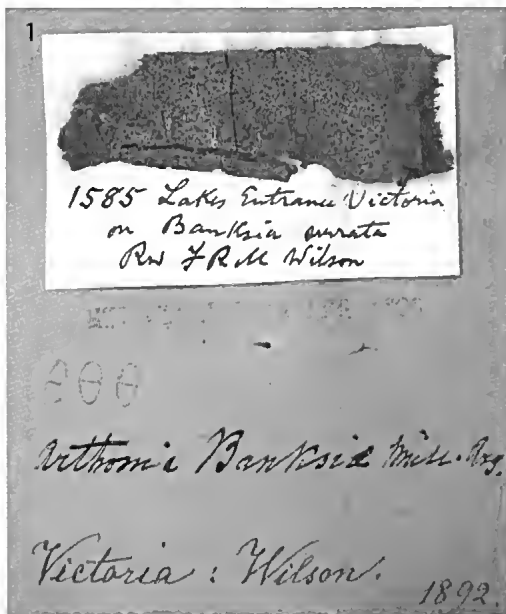 1
1585 Lakes Entrance Victoria
on Banksia serrata
Rev F R M Wilson
Arthonia Banksiæ Müll. Arg.
Victoria : Wilson.
1892.